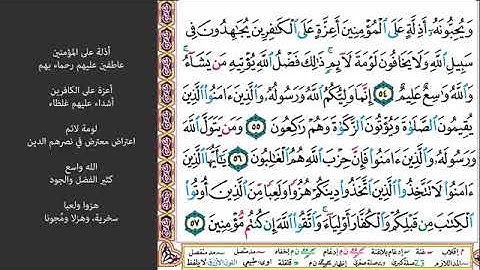 وَيُحِبُّونَهُۥٓ أَذِلَّةٍ عَلَى ٱلْمُؤْمِنِينَ أَعِزَّةٍ عَلَى ٱلْكَٰفِرِينَ يُجَٰهِدُونَ فِى
سَبِيلِ ٱللَّهِ وَلَا يَخَافُونَ لَوْمَةَ لَآئِمٍ ۚ ذَٰلِكَ فَضْلُ ٱللَّهِ يُؤْتِيهِ مَن يَشَآءُ ۚ
وَٱللَّهُ وَٰسِعٌ عَلِيمٌ ٥٤ إِنَّمَا وَلِيُّكُمُ ٱللَّهُ وَرَسُولُهُۥ وَٱلَّذِينَ ءَامَنُوا۟ ٱلَّذِينَ
يُقِيمُونَ ٱلصَّلَوٰةَ وَيُؤْتُونَ ٱلزَّكَوٰةَ وَهُمْ رَٰكِعُونَ ٥٥ وَمَن يَتَوَلَّ ٱللَّهَ
وَرَسُولَهُۥ وَٱلَّذِينَ ءَامَنُوا۟ فَإِنَّ حِزْبَ ٱللَّهِ هُمُ ٱلْغَٰلِبُونَ ٥٦ يَٰٓأَيُّهَا ٱلَّذِينَ
ءَامَنُوا۟ لَا تَتَّخِذُوا۟ ٱلَّذِينَ ٱتَّخَذُوا۟ دِينَكُمْ هُزُوًا وَلَعِبًا مِّنَ ٱلَّذِينَ أُوتُوا۟
ٱلْكِتَٰبَ مِن قَبْلِكُمْ وَٱلْكُفَّارَ أَوْلِيَآءَ ۚ وَٱتَّقُوا۟ ٱللَّهَ إِن كُنتُم مُّؤْمِنِينَ ٥٧
أذلة على المؤمنين
عاطفين عليهم رحماء بهم
أعزة على الكافرين
أشداء عليهم غلظاء
لومة لائم
اعتراض معترض في نصرهم الدين
الله واسع
كثير الفضل والجود
هزوا ولعبا
سخرية، وهزلا ومُجونا